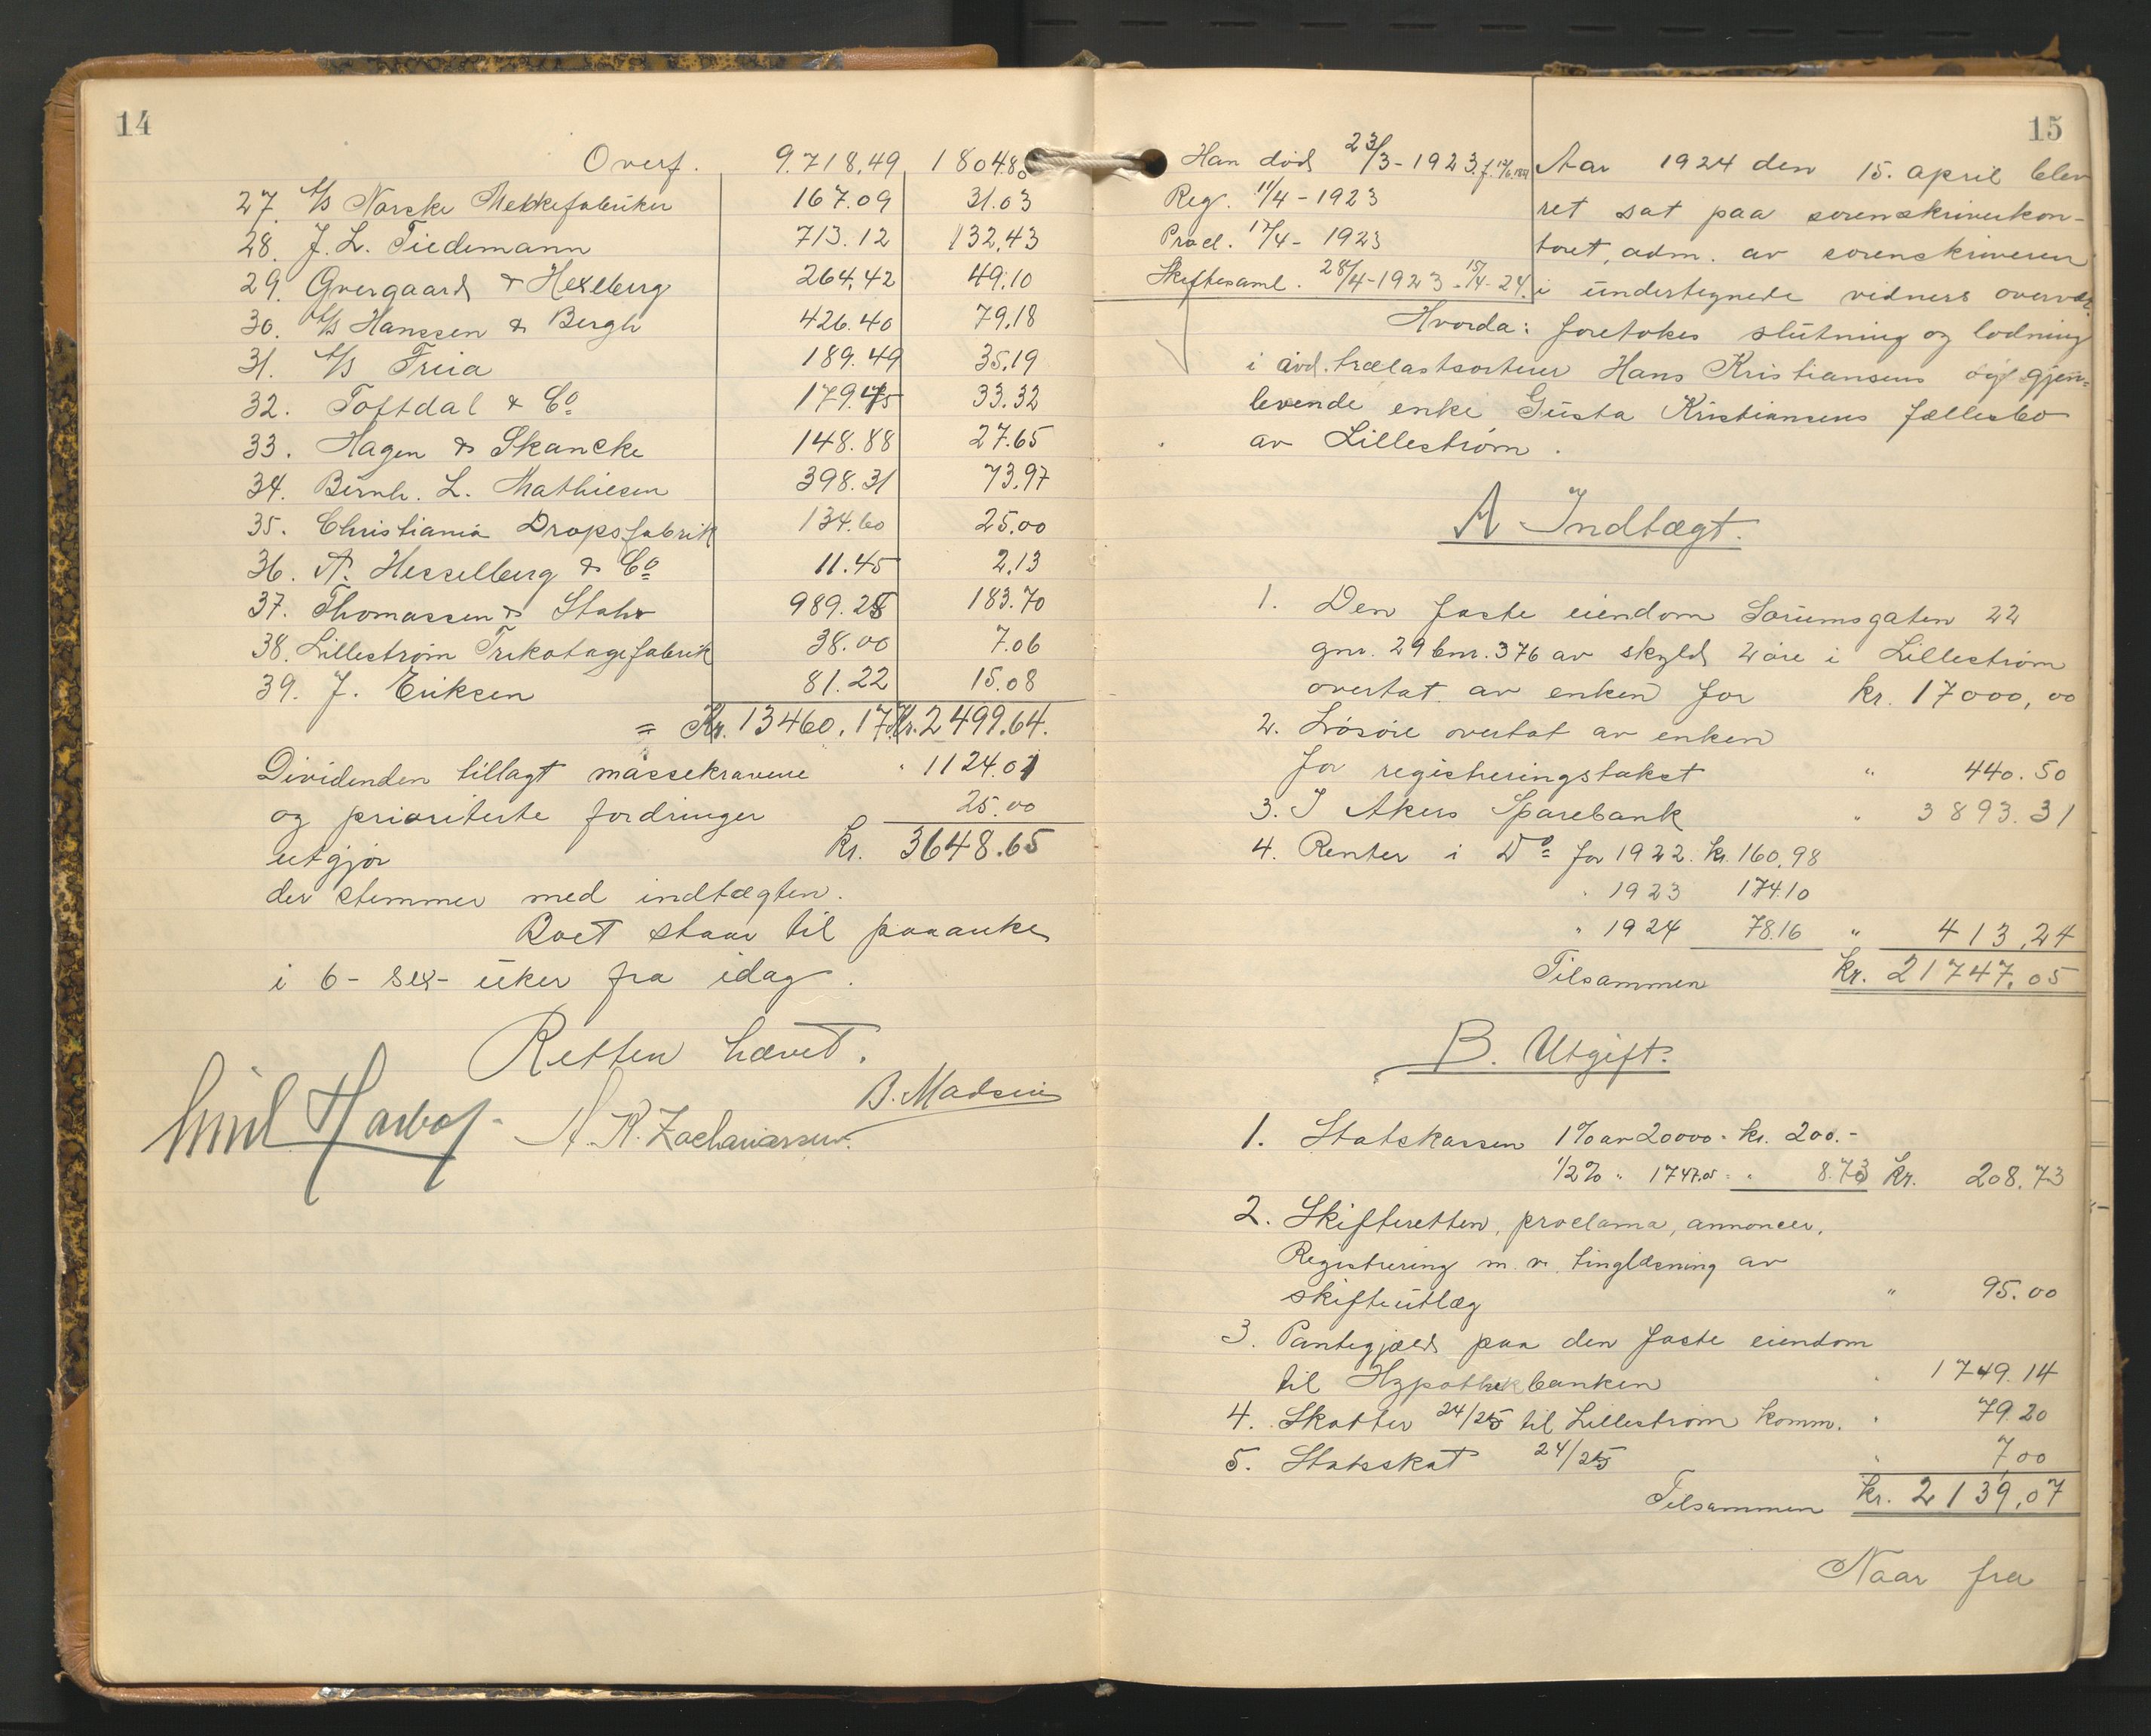 14
Overf. 9.718,49 1804.80
27. A/s Norske Melkefabriker 167.09 31.03
28. J. L. Tiedemann 713.12 132,43
29. Gvergaard & Hexeberg 264,42 49,10
30. A/s Hanssen & Bergh 426.40 79,18
31. A/s Freia 189.49 35,19
32. Toftdal & Co 179.45 33.32
33. Hagen & Skancke 148.88 27.65
34. Bernh. L. Mathiesen 398.31 73,97
35. Christiania Dropsfabrik 134.60 25.00
36. A. Hesselberg & Co 11.45 2,13
37. Thomassen & Stahr 989.28 183.70
38. Lillestrøm Trikotagefabrik 38.00 7.06
39. J. Eriksen 81.22 15.08
= Kr. 13460.17 Kr. 2499.64.
Dividenden tillagt massekravene " 1124.01
og prioriterte fordringer 25.00
utgjør kr. 3648.65
der stemmer med indtægten.
Boet staar til paaanke
i 6 - sex - uker fra idag.
Retten hævet.
B. Madsen
Emil A. K. Zachariassen.
15
Han død 23/3 - 1923.
Reg. 11/4 - 1923
Procl. 17/4 - 1923
Skiftesaml. 28/4 - 1923 - 15/4 - 24.
Aar 1924 den 15. april blev
ret sat paa sorenskriverkon-
toret, adm. av sorenskriveren
i undertegnede vidners overvær.
Hvorda: foretokes slutning og lodning
i avd. trælastsorterer Hans Kristiansens og gjen-
levende enke Gusta Kristiansens fællesbo
av Lillestrøm.
A Indtægt.
1. Den faste eiendom Sørumsgaten 22
gnr. 29 bnr. 376 av skyld 2 øre i Lillestrøm
overtat av enken for kr. 17000,00
2. Løsøre overtat av enken
for registreringstakst " 440.50
3. I Akers Sparebank " 3893.31
4. Renter i Do for 1922. kr. 160,98
" 1923 174.10
" 1924 78.16 " 413,24
Tilsammen kr. 21747,05
B. Utgift.
1. Statskassen 1% av 20000 = kr. 200.-
1/2% " 1747.05 = " 8.73 Kr. 208.73
2. Skifteretten, proclama, annoncer,
Registrering m. v. tinglæsning av
skifteutlæg " 95.00
3. Pantegjæld paa den faste eiendom
til Hypothekbanken " 1749.14
4. Skatter 24/25 til Lillestrøm komm. " 79.20
5. Statsskat 24/25 " 7,00
Tilsammen kr. 2139,07
Naar fra